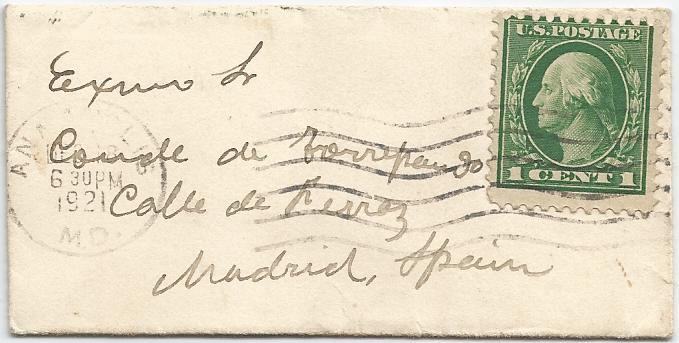 U.S. POSTAGE
1 CENT 1
ANNAPOLIS
6 30 PM
1921
MD.
Exmo Sr
Conde de Torrepando
Calle de Ferraz
Madrid, Spain